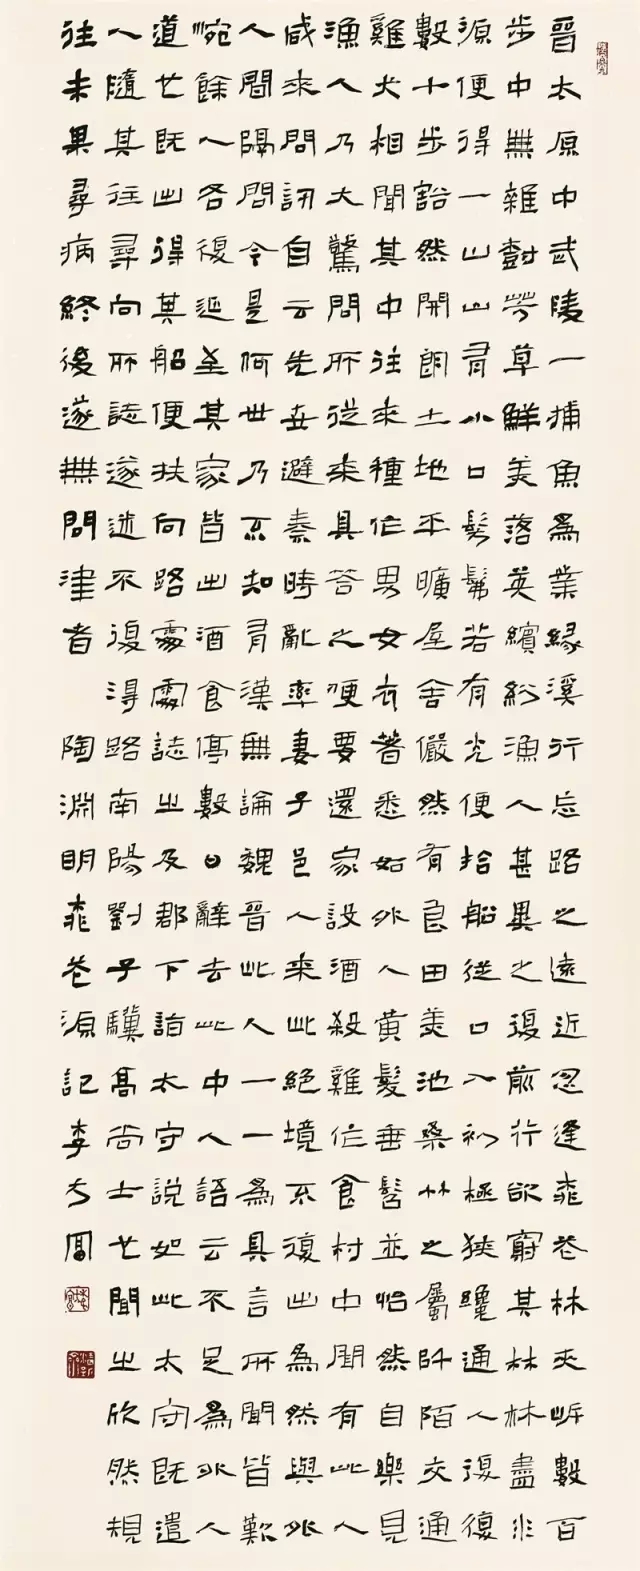 晉太原中武陵一捕魚爲業緣溪行忘路之遠近忽逢桃花林夾岸數百
步中無雜樹芳草鮮美落英繽紛漁人甚異之復前行欲窮其林林盡水
源便得一山山有小口髣髴若有光便捨船從口入初極狹纔通人復復
數十步豁然開朗土地平曠屋舍儼然有良田美池桑竹之屬阡陌交通
雞犬相聞其中往來種作男女衣著悉如外人黃髮垂髫並怡然自樂見
漁人乃大驚問所從來具答之便要還家設酒殺雞作食村中聞有此人
咸來問訊自云先世避秦時亂率妻子邑人來此絕境不復出為然與外
人間隔問今是何世乃不知有漢無論魏晉此人一一爲具言所聞皆歎
惋餘人各復延至其家皆出酒食停數日辭去此中人語云不足爲外人
道也既出得其船便扶向路處處誌之及郡下詣太守説如此太守既遣
人隨其往尋向所誌遂迷不復得路南陽劉子驥高尚士也聞之欣然規
往未果尋病終後遂無問津者 陶淵明桃花源記李